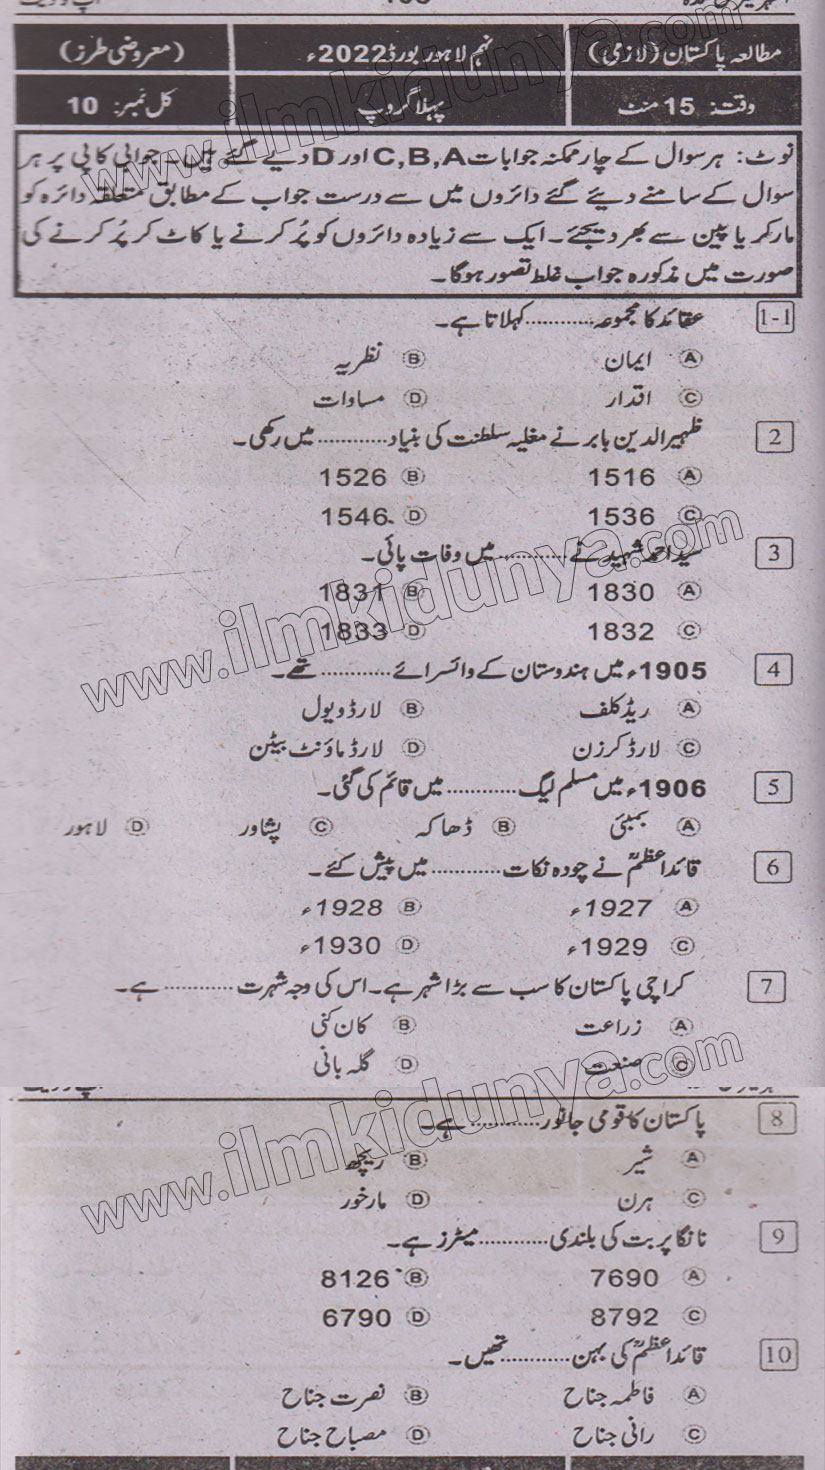 مطالعہ پاکستان (لازمی) نہم لاہور بورڈ 2022ء (معروضی طرز)
وقت: 15 منٹ پہلا گروپ کل نمبر: 10
نوٹ: ہر سوال کے چار ممکنہ جوابات C,B,A اور D دیے گئے ہیں۔ جوابی کاپی پر ہر
سوال کے سامنے دیئے گئے دائروں میں سے درست جواب کے مطابق متعلقہ دائرہ کو
مارکر یا پین سے بھر دیجئے۔ ایک سے زیادہ دائروں کو پُر کرنے یا کاٹ کر پُر کرنے کی
صورت میں مذکورہ جواب غلط تصور ہوگا۔
1-1 عقائد کا مجموعہ............کہلاتا ہے۔
A ایمان B نظریہ
C اقدار D مساوات
2 ظہیر الدین بابر نے مغلیہ سلطنت کی بنیاد............میں رکھی۔
A 1516 B 1526
C 1536 D 1546
3 سید احمد شہید نے............میں وفات پائی۔
A 1830 B 1831
C 1832 D 1833
4 1905ء میں ہندوستان کے وائسرائے............تھے۔
A ریڈکلف B لارڈ ویول
C لارڈ کرزن D لارڈ ماؤنٹ بیٹن
5 1906ء میں مسلم لیگ............میں قائم کی گئی۔
A بمبئی B ڈھاکہ C پشاور D لاہور
6 قائداعظمؒ نے چودہ نکات............میں پیش کئے۔
A 1927ء B 1928ء
C 1929ء D 1930ء
7 کراچی پاکستان کا سب سے بڑا شہر ہے۔ اس کی وجہ شہرت............ہے۔
A زراعت B کان کنی
C صنعت D گلہ بانی
8 پاکستان کا قومی جانور............ہے۔
A شیر B ریچھ
C ہرن D مارخور
9 نانگا پربت کی بلندی............میٹرز ہے۔
A 7690 B 8126
C 8792 D 6790
10 قائداعظمؒ کی بہن............تھیں۔
A فاطمہ جناح B نصرت جناح
C رانی جناح D مصباح جناح
www.ilmkidunya.com
www.ilmkidunya.com
www.ilmkidunya.com